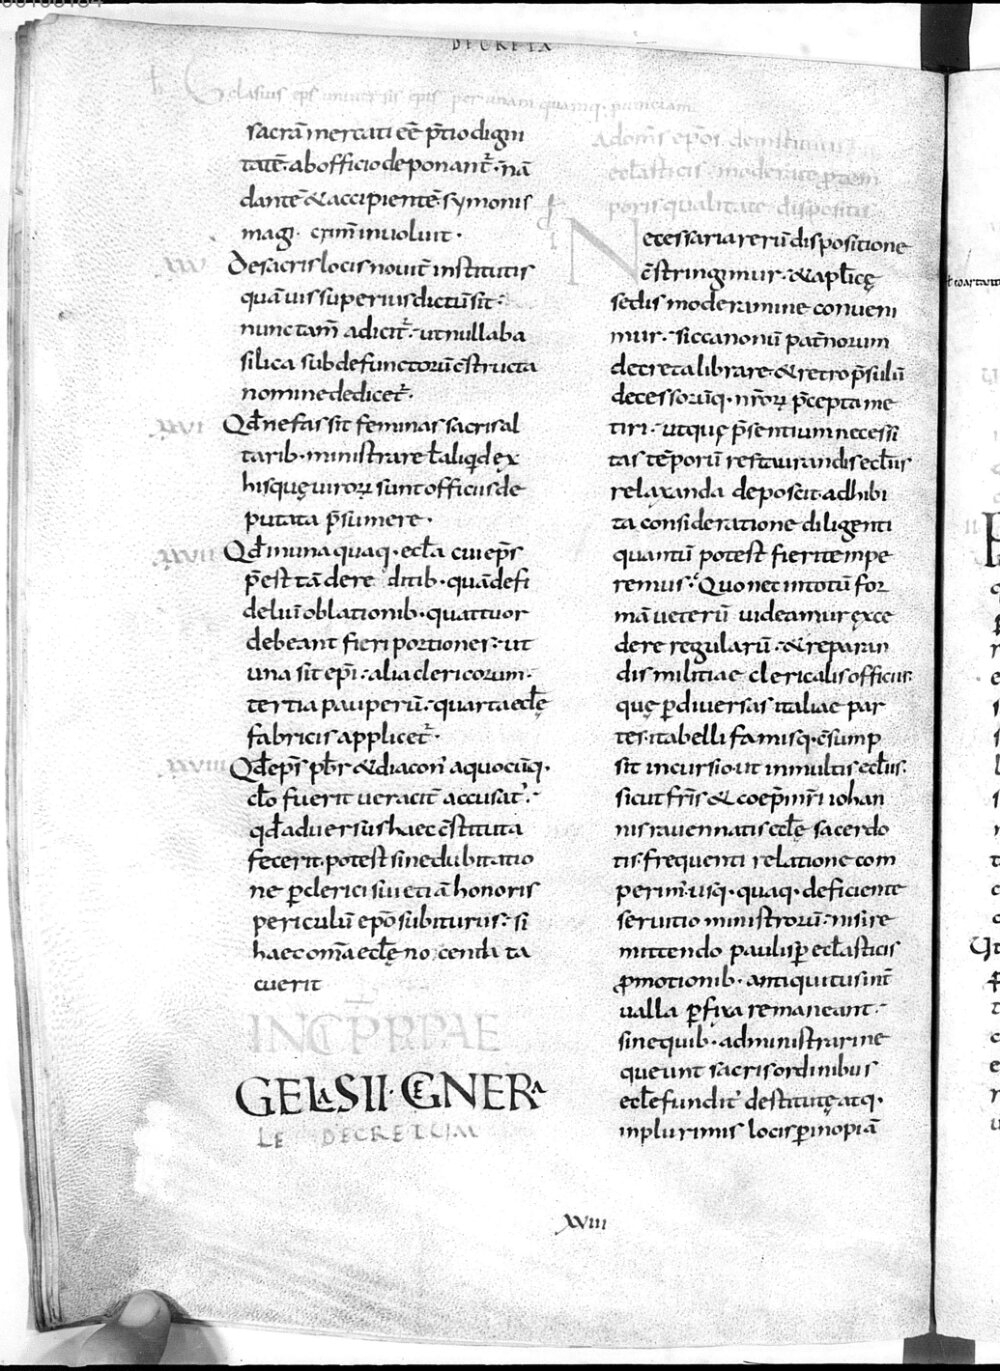 DECRETA
Gelasius ep̄s uniuersis ep̄is per unam quamq· 
sacrā mercati eē p̄tio digni
tatē· ab officio deponant̄· nā
dantē & accipientē symonis
magi· crim̄ inuoluit·
XXV De sacris locis nouit̄ institutis
quāuis superius dictū sit·
nunc tam̄ adicit̄· ut nulla ba
silica sub defunctorū c̄structa
nomine dedicet̄·
XXVI Qd̄ nefas sit feminas sacris al
tarib· ministrare ł aliqd ex
his quę uiroꝝ sunt officiis de
putata p̄sumere·
XXVII Qd̄ in una quaq· eccl̄a cui ep̄s
p̄est tā de re ditib· quā de fi
deliū oblationib· quattuor
debeant fieri portiones· ut
una sit ep̄i· alia clericorum·
tertia pauperū· quarta eccl̄ę
fabricis applicet̄·
XXVIII Qd̄ ep̄s pb̄r & diacoñ a quocūq·
cl̄o fuerit ueracit̄ accusat̄·
qd̄ aduersus haec c̄stituta
fecerit· potest sine dubitatio
ne ꝑ clerici siue etiā honoris
periculū ep̄o subiturus· si
haec om̄a eccl̄ę nocentia ta
cuerit
INCP PRPAE
GELASII· GENERA
LE DECRETUM
Ad om̄s ep̄os de institutis
eccl̄asticis moderate ꝓ tem
poris qualitate dispositis
I Necessaria rerū dispositione
c̄stringimur· & apl̄icę
sedis moderamine conueni
mur· sic canonū pat̄norum
decreta librare· & retro p̄sulū
decessorūq· nr̄oꝝ p̄cepta me
tiri· ut quę p̄sentium necessi
tas tēporū restaurandis eccl̄iis
relaxanda deposcit· adhibi
ta consideratione diligenti
quantū potest fieri tempe
remus· Quo nec in totū for
mā ueterū uideamur exce
dere regularū· & reparan
dis militiae clericalis officiis·
quę ꝑ diuersas italiae par
tes· ita belli famisq· c̄sump
sit incursio· ut in multis eccl̄iis·
sicut fr̄is & coep̄i nr̄i iohan
nis rauennatis eccl̄ę sacerdo
tis· frequenti relatione com
perim̄· usq· quaq· deficiente
seruitio ministrorū· nisi re
mittendo paulisꝑ eccl̄asticis
ꝓmotionib· antiquitus int̄
ualla ꝑfixa remaneant·
sine quib· administrari ne
queunt sacris ordinibus
eccl̄e fundit̄ destitutę atq·
in plurimis locis ꝑ inopiā
XVIII